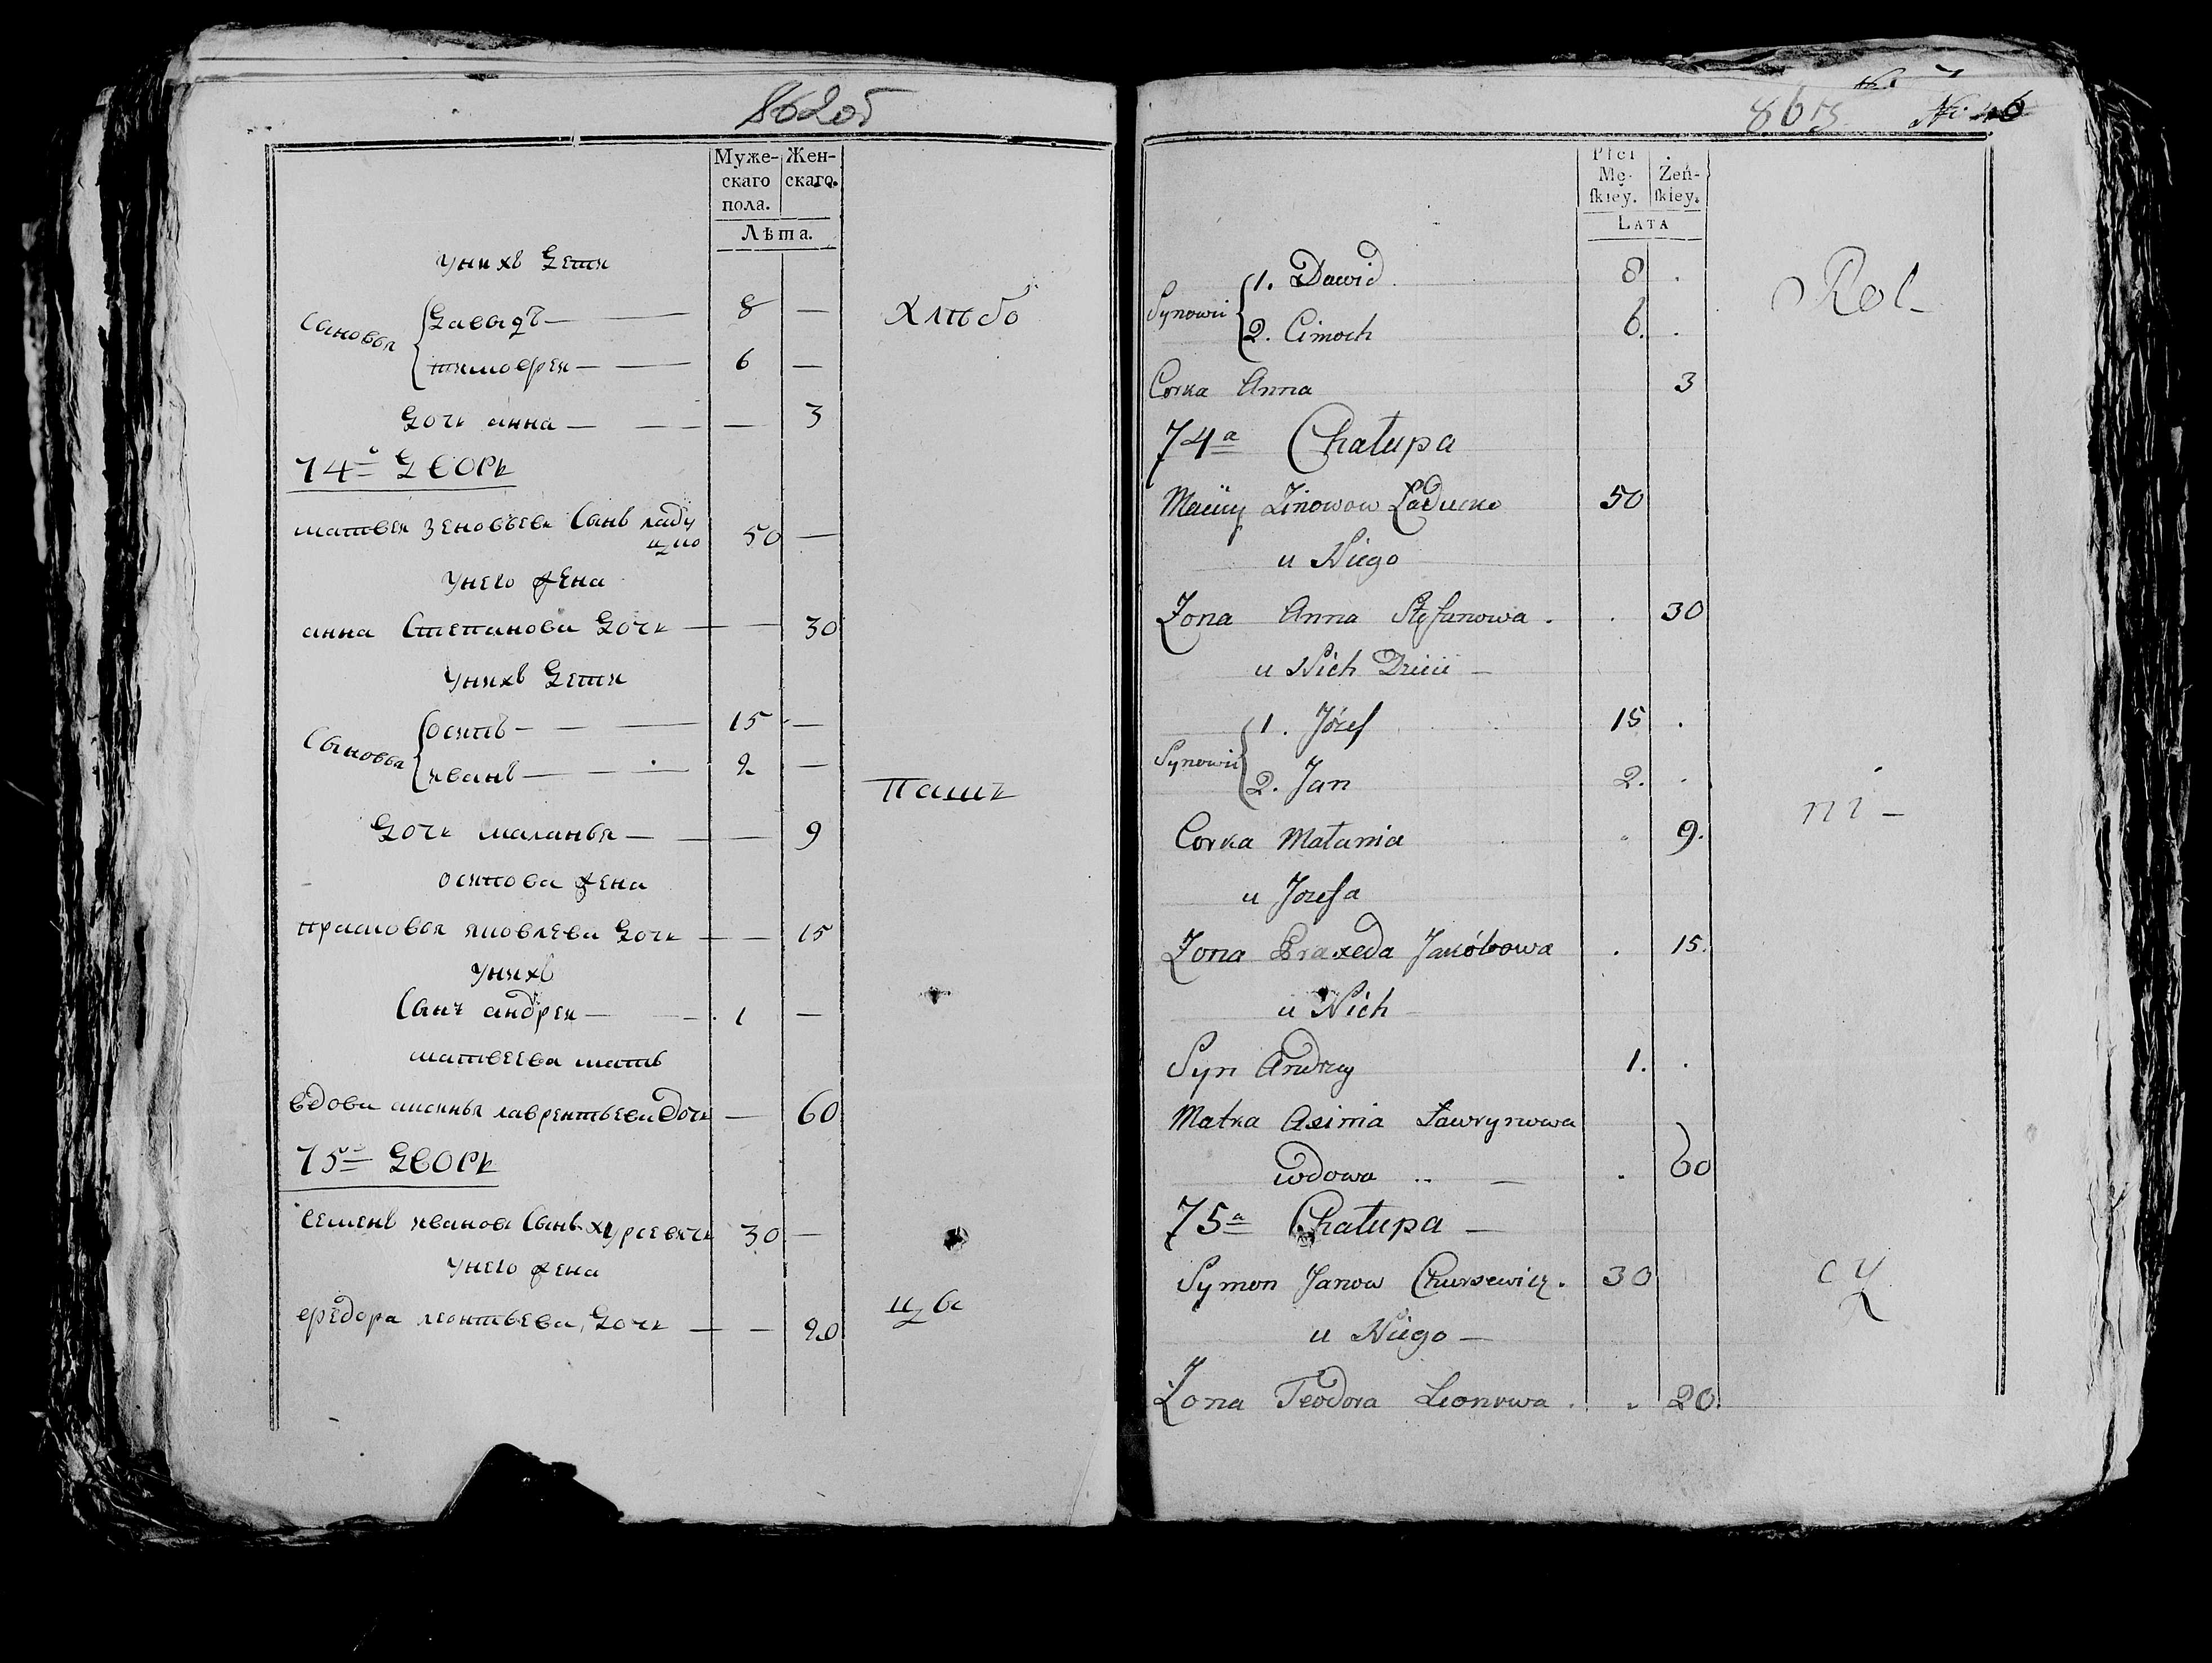 862об
Муже-
скаго
пола.
Жен-
скаго.
Лѣта.
унихъ Дети
Сыновья
Давыдъ — 8 —
тимофеи — 6 —
Дочь анна — — 3
74й ДВОРЪ
матвеи Зеновьевъ Сынъ ладу
цко 50 —
унего жена
анна Степанова Дочь — 30
унихъ Дети
Сыновья
осипъ — 15 —
иванъ — 2 —
Дочь маланья — — 9
осипова жена
прасковья яковлева Дочь — 15
унихъ
Сынъ андреи — 1 —
матвеева мать
вдова аксинья лаврентьева дочь — 60
75й ДВОРЪ
Семенъ ивановъ Сынъ хурсевичь 30 —
унего жена
федора леонтьева Дочь — — 20
Хлѣбо
Паш
цы
863
Płci
Mę-
ſkiey.
Żeń-
ſkiey.
LATA
Synowii
1. Dawid 8 .
2. Cimoch 6. .
Corka Anna 3
74a Chałupa
Maciiy Zinowow Ładucko 50
u Niego
Zona Anna Stefanowa . . 30
u Nich Dziiii —
Synowii
1. Józef 15 .
2. Jan 2. .
Corka Małania 9.
u Jozefa
Zona Praxeda Jakóbowa . 15.
u Nich
Syn Andrzey 1. .
Matka Axinia Ławrynowa
wdowa .. — . 60
75a Chałupa —
Symon Janow Chursewicz. 30
u Niego —
Zona Teodora Leonowa . . 20.
Rol-
ni-
cy